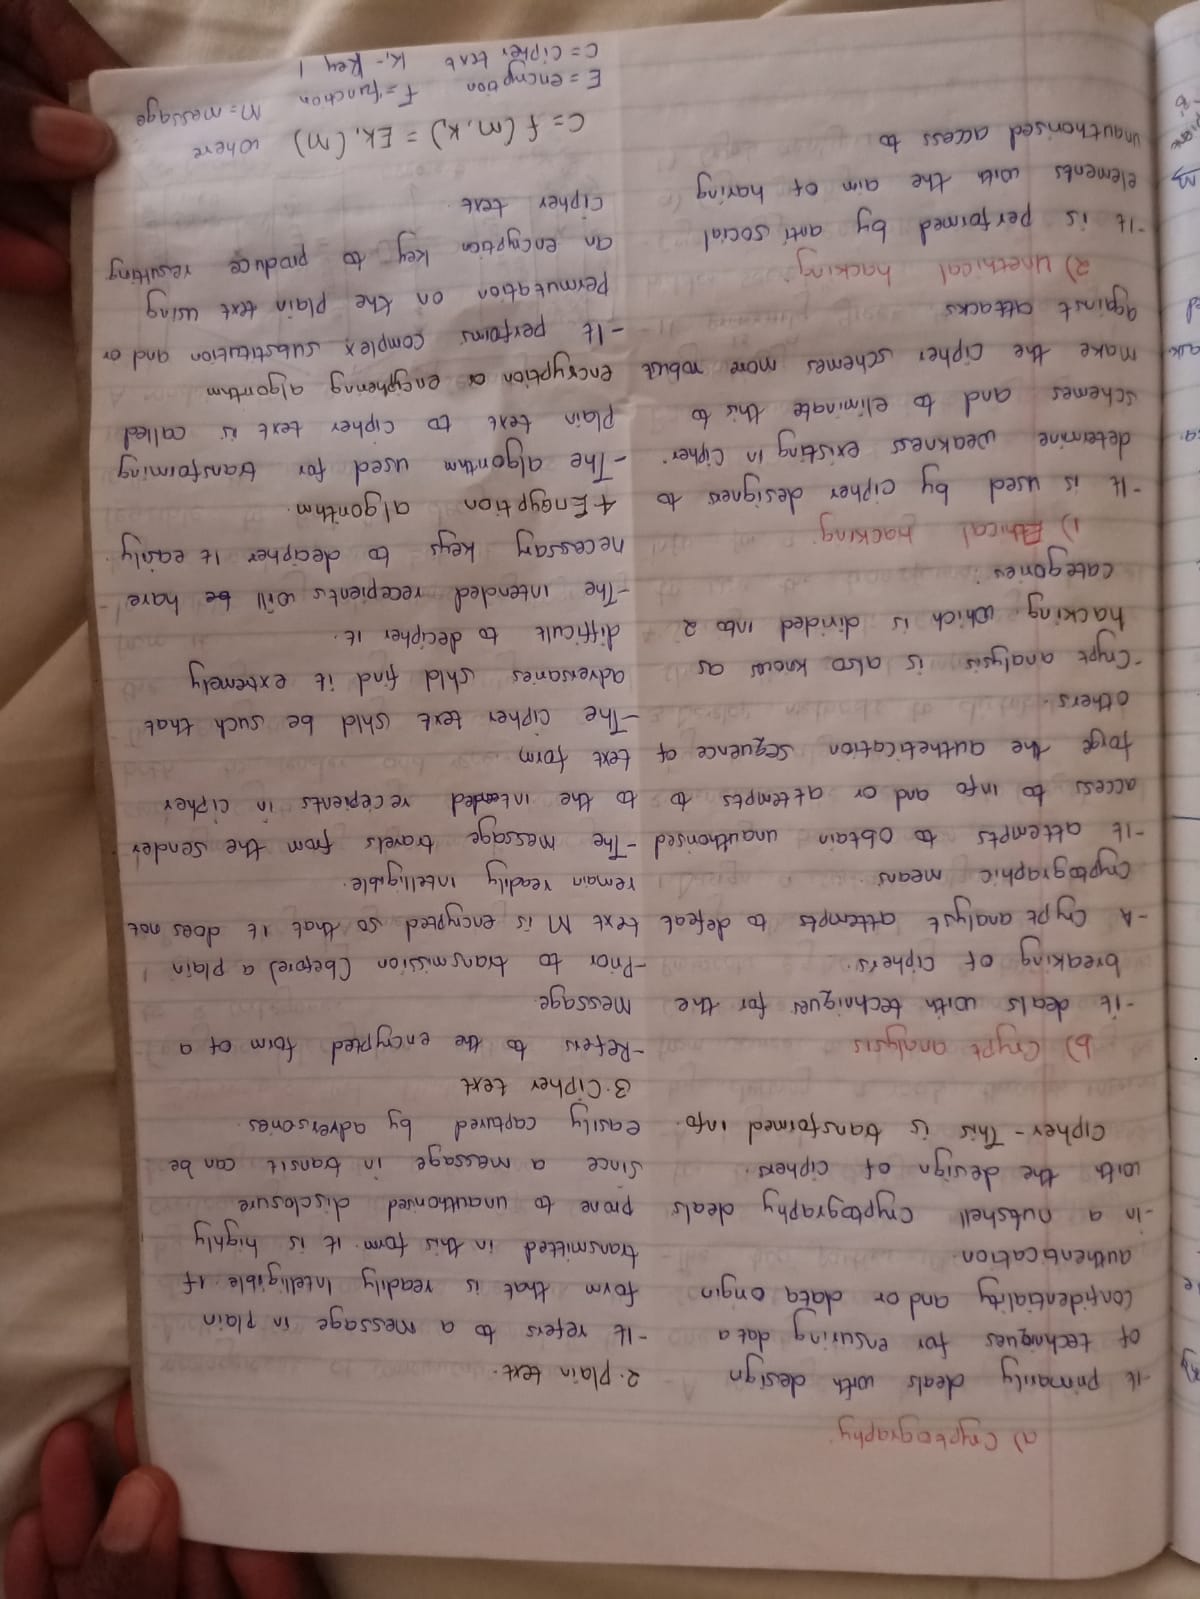 a) Cryptography
-It primarily deals with design
of techniques for ensuring data
confidentiality and or data origin
authentication.
-In a nutshell cryptography deals
with the design of ciphers.
Cipher - This is transformed info.
b) Crypt analysis
-it deals with techniques for the
breaking of ciphers.
-A Crypt analyst attempts to defeat
cryptographic means.
-It attempts to obtain unauthorised
access to info and or attempts to
forge the authetication sequence of
others.
-Crypt analysis is also known as
hacking. which is divided into 2
categories:
1) Ethical hacking.
-It is used by cipher designers to
determine weakness existing in cipher.
schemes and to eliminate this to
make the cipher schemes more robust
against attacks.
2) Unethical hacking.
-It is performed by anti social
elements with the aim of having
unauthorised access to
2. Plain text.
-It refers to a message in plain
form that is readily Intelligible. If
transmitted in this form. it is highly
prone to unauthorised disclosure
since a message in transit can be
easily captured by adversories.
3. Cipher text
-Refers to the encrypted form of a
message.
-Prior to transmission (before) a plain
text M is encrypted so that it does not
remain readily intelligible.
-The message travels from the sender
to the intended recepients in cipher
text form
-The cipher text shld be such that
adversaries shld find it extremely
difficult to decipher it.
-The intended recepients will be have
necessary keys to decipher it easily.
4 Encryption algorithm.
-The algorithm used for transforming
plain text to cipher text is called
encryption or encyphering algorithm
-It performs complex substitution and or
permutation on the plain text using
an encryption key to produce resulting
cipher text.
C = f(M, K1) = EK1 (M) where
E = encryption F = function M = message
C = cipher text K1 - key 1